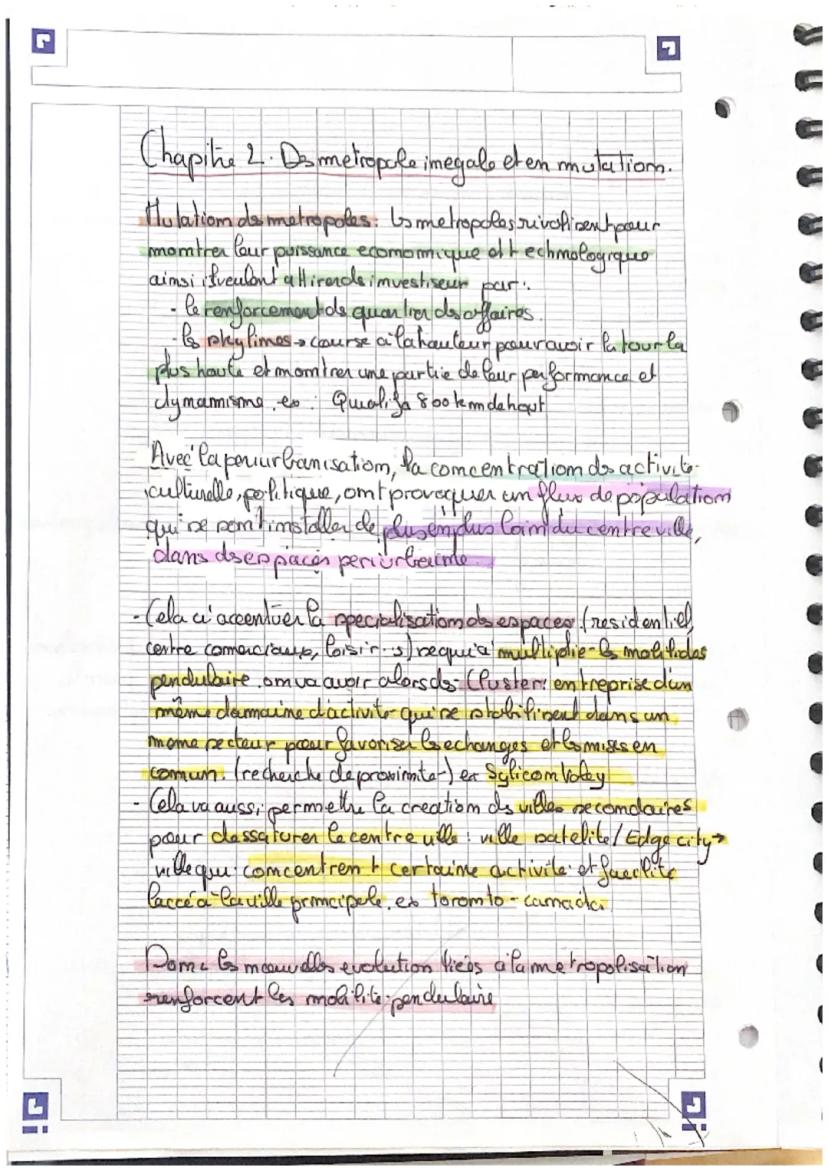 Chapitre 2. Des metropole inegale et en mutation.
Mutation des metropoles : les metropoles rivalisent pour
montrer leur puissance economique et technologique
ainsi il veulent attirer des investiseur par :
- le renforcement de quartier des affaires.
- les skylines → course à la hauteur pour avoir la tour la
plus haute et montrer une partie de leur performance et
dynamisme. ex : 800 km de haut
Avec la periurbanisation, la concentration des activité
culturelle, politique, ont provoquer un flux de population
qui se sont installer de plus en plus loin du centre ville,
dans des espaces periurbaine
- Cela a accentuer la specialisation des espaces (residentiel,
centre comerciaux, loisirs) ce qui a multiplie les mobilités
pendulaire. on va avoir alors des Cluster : entreprise d'un
même domaine d'activité qui se stabilisent dans un
meme secteur pour favoriser les echanges et les mises en
comun. (recherche de proximité) ex Sylicon Valey
- Cela va aussi permettre la creation des villes secondaires
pour dessaturer le centre ville : ville satelite / Edge city →
ville qui concentrent certaine activité et facilite
l'accé à la ville principale. ex toronto - canada.
Donc les nouvelles evolution liées à la metropolisation
renforcent les mobilité pendulaire